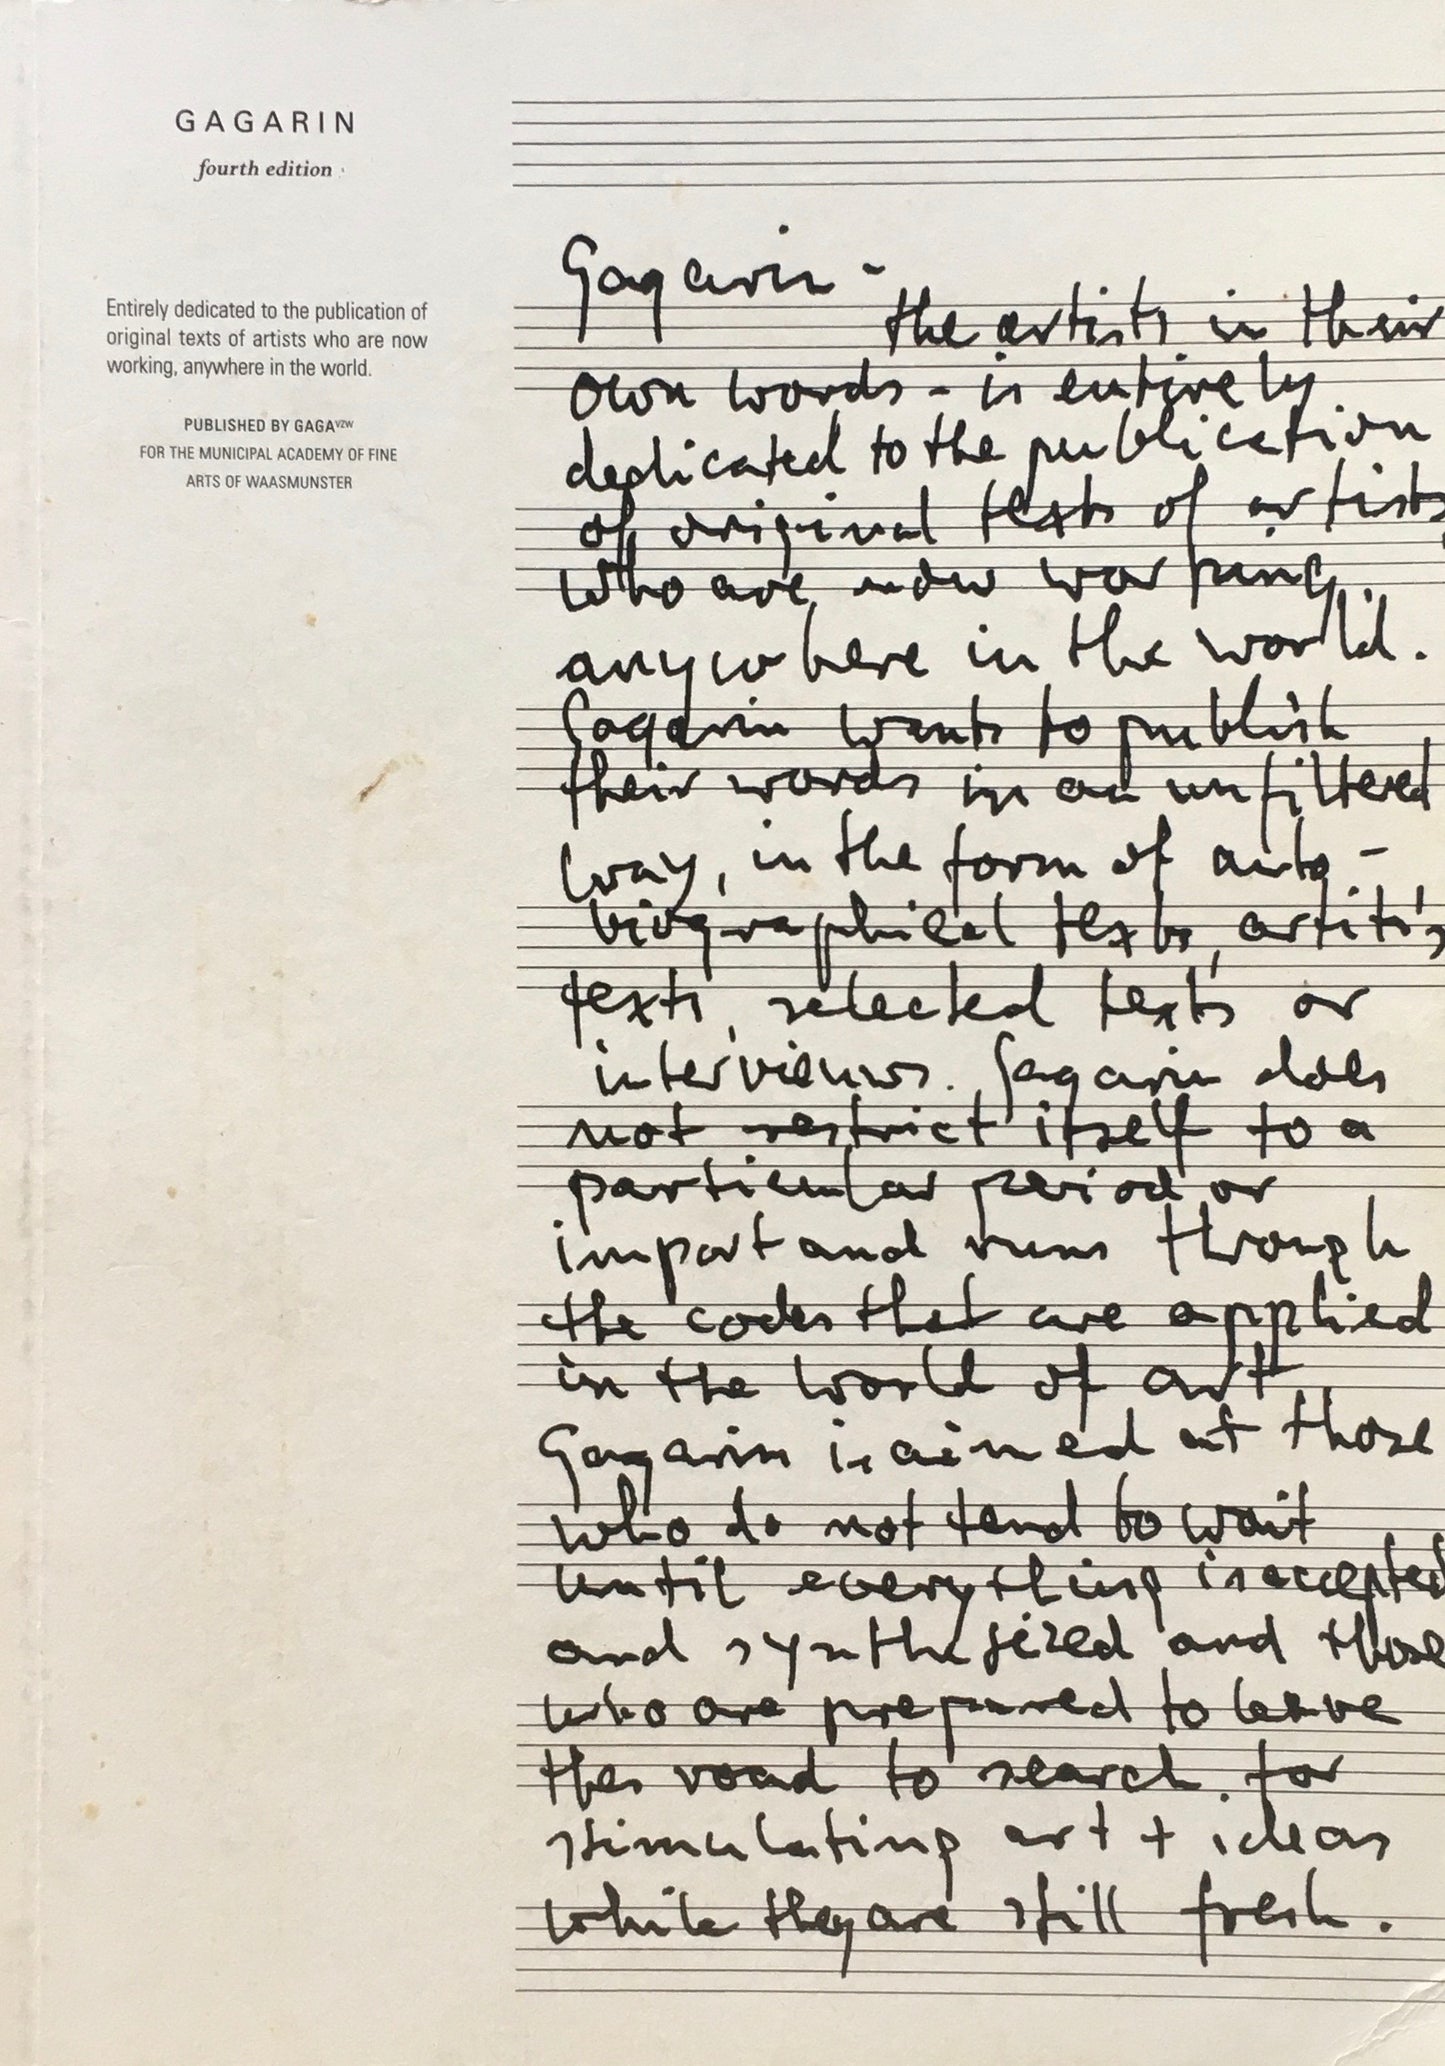 GAGARIN
fourth edition
Entirely dedicated to the publication of
original texts of artists who are now
working, anywhere in the world.
PUBLISHED BY GAGAVZW
FOR THE MUNICIPAL ACADEMY OF FINE
ARTS OF WAASMUNSTER
Gagarin -
the artists in their
own words - is entirely
dedicated to the publication
of original texts of artists
who are now working,
anywhere in the world.
Gagarin wants to publish
their words in an unfiltered
way, in the form of auto-
biographical texts, artist's
texts, selected texts or
interviews. Gagarin does
not restrict itself to a
particular period or
import and runs through
the codes that are applied
in the world of art
Gagarin is aimed at those
who do not tend to wait
until everything is accepted
and synthesized and those
who are prepared to leave
the road to search for
stimulating art + ideas
while they are still fresh.